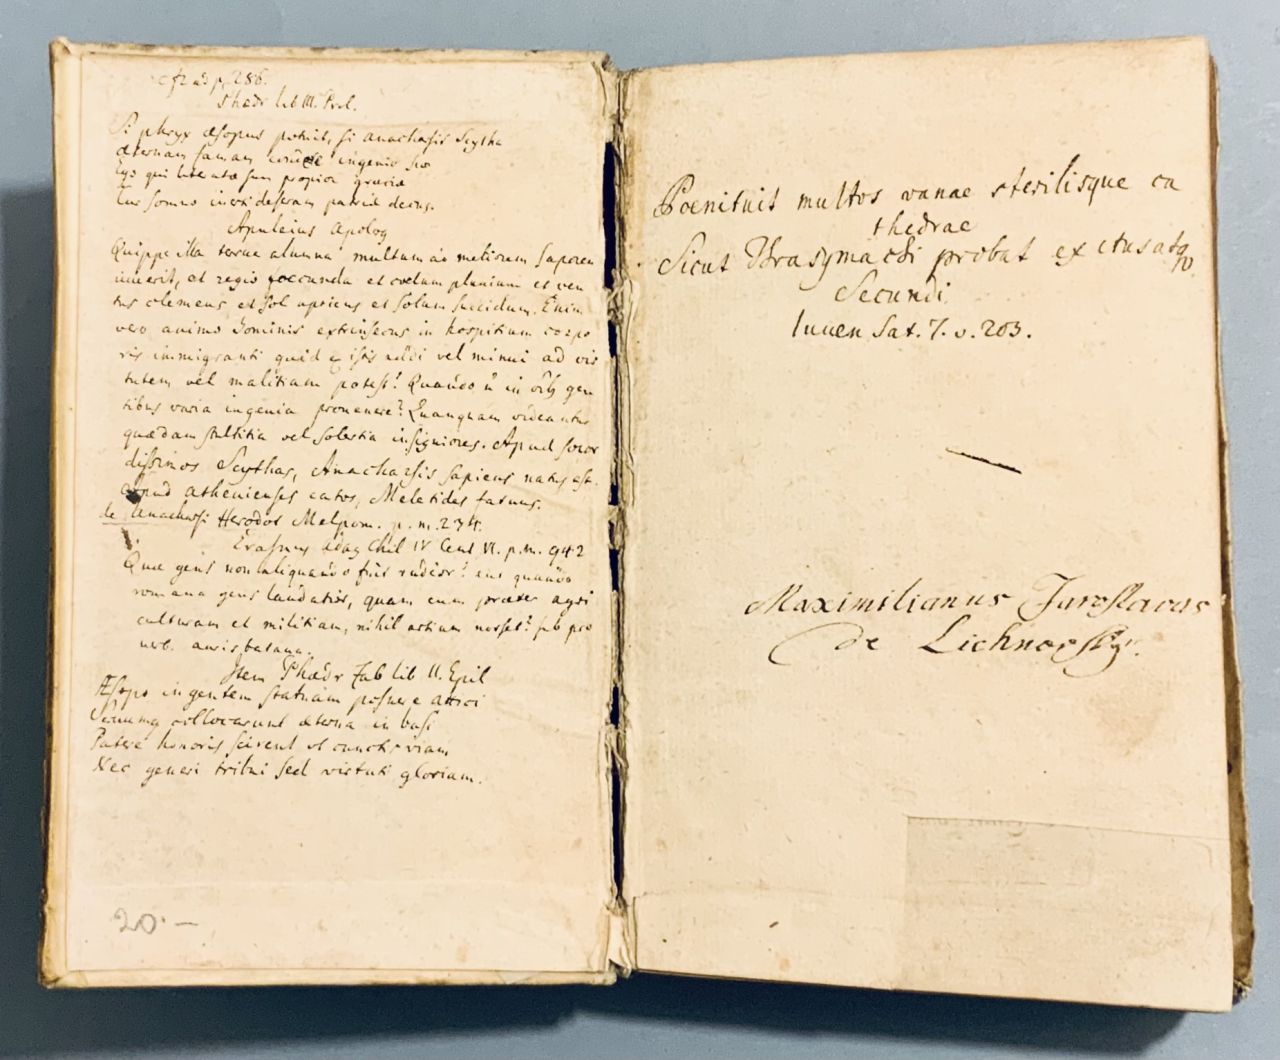 cfr ad p. 286.
Phaedr lib III. Prol.
Si phryx æsopus potuit, si anacharsis Scytha
æternam famam condere ingenio suo
Ego qui literatæ sum propior græciæ
Cur somno inerti deseram patriæ decus.
Apuleius Apolog
Quippe illa terrae alumna multum ad meliorem saporem
iuuerit, et regio foecunda et coelum pluuium et ven
tus clemens, et Sol apricus et solum succidum. Enim
vero animo hominis extrinsecus in hospitium corpo
ris immigranti quid ex istis addi vel minui ad vir
tutem vel malitiam potest? Quando ñ in oĩb gen
tibus varia ingenia prouenere? Quanquam videantur
quædam stultitia vel solertia insigniores. Apud socor
dissimos Scythas, Anacharsis sapiens natus est.
apud athenienses catos, Meletides fatuus.
de Anacharsi Herodot Melpom. p. m. 234.
Erasmus adag Chil IV Cent VI. p. m. 942
Quæ gens non aliquando fuit rudior? aut quando
romana gens laudatior, quam cum præter agri
culturam et militiam, nihil artium nosset? sub pro
uerb. auris bataua.
Item Phædr Fab lib II. Epil
Æsopo ingentem statuam posuere attici
Seruumq collocarunt æterna in basi
Patere honoris scirent ut cuncti viam
Nec generi tribui sed virtuti gloriam.
20.—
Poenituit multos vanae sterilisque ca
thedrae
Sicut Thrasymachi probat exitus atq
Secundi.
Iuuen Sat. 7. v. 203.
Maximilianus Jaroslavus
de Lichnovsky.